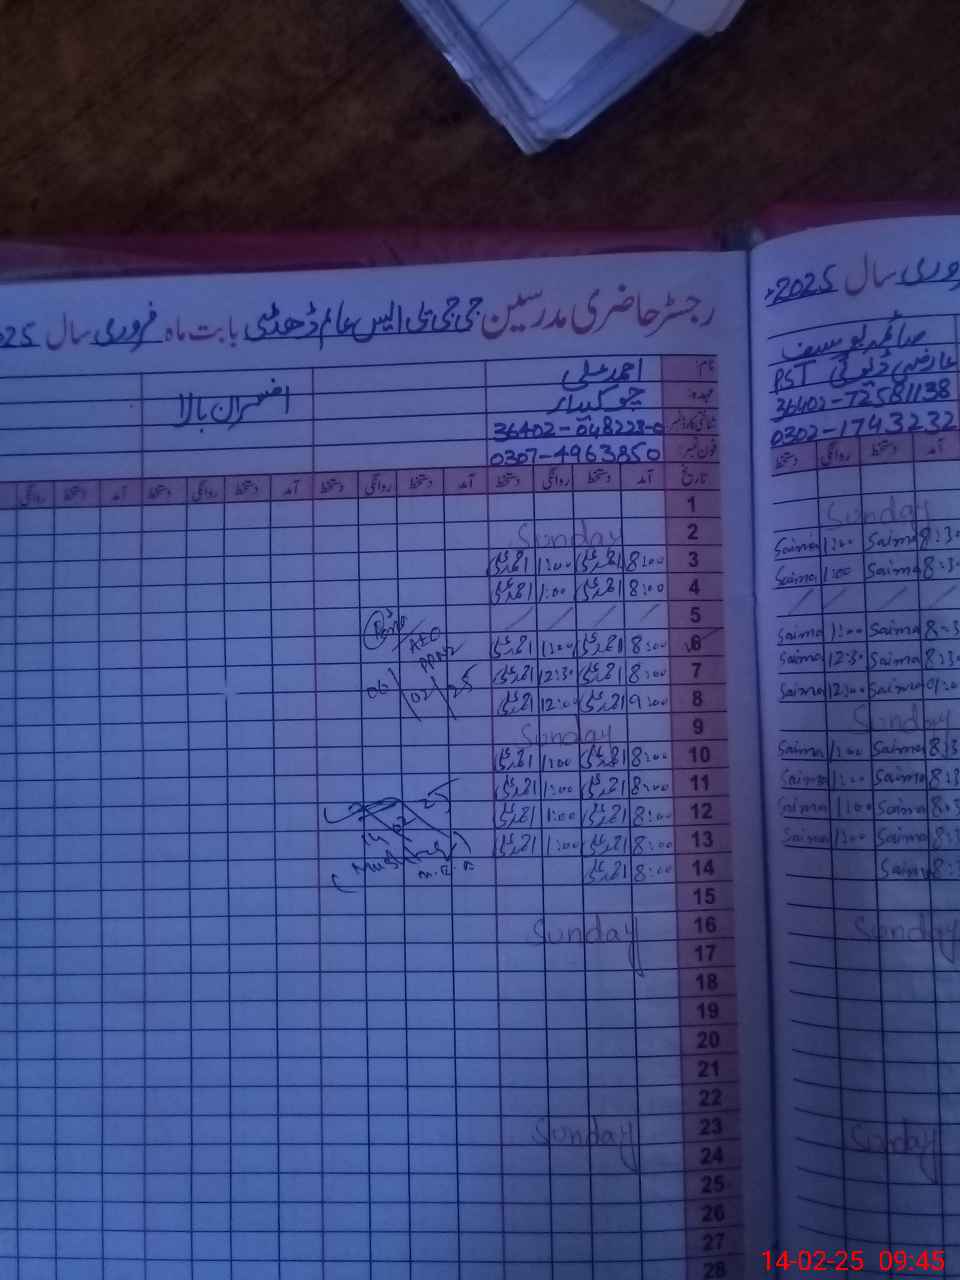 رجسٹر حاضری مدرسین جی جی پی ایس عالم ڈھڈی بابت ماہ فروری سال 2025
نام احمد علی افسران بالا
عہدہ چوکیدار
36402-0482228-0
فون نمبر 0307-4963850
تاریخ آمد دستخط روانگی دستخط آمد دستخط روانگی دستخط آمد دستخط روانگی دستخط آمد دستخط روانگی
1
2 Sunday
3 8:00 احمد علی 1:00 احمد علی
4 8:00 احمد علی 1:00 احمد علی
5 / / / /
6 8:00 احمد علی 1:00 احمد علی AEO
7 8:00 احمد علی 12:30 احمد علی
06/02/25
8 9:00 احمد علی 12:00 احمد علی
9 Sunday
10 8:00 احمد علی 1:00 احمد علی
11 8:00 احمد علی 1:00 احمد علی
12 8:00 احمد علی 1:00 احمد علی
13 8:00 احمد علی 1:00 احمد علی
14 8:00 احمد علی
15
16 Sunday
17
18
19
20
21
22
23 Sunday
24
25
26
27
28
فروری سال 2025
صائمہ یوسف
عارضی ڈیوٹی PST
36402-72581138
0302-1743232
آمد دستخط روانگی دستخط
Sunday
8:30 Saima 1:00 Saima
8:30 Saima 1:00 Saima
/ / / /
8:30 Saima 1:00 Saima
8:30 Saima 12:30 Saima
9:00 Saima 12:00 Saima
Sunday
8:3 Saima 1:00 Saima
8:3 Saima 1:00 Saima
8:3 Saima 1:00 Saima
8:3 Saima 1:00 Saima
8:3 Saima
Sunday
Sunday
14-02-25 09:45